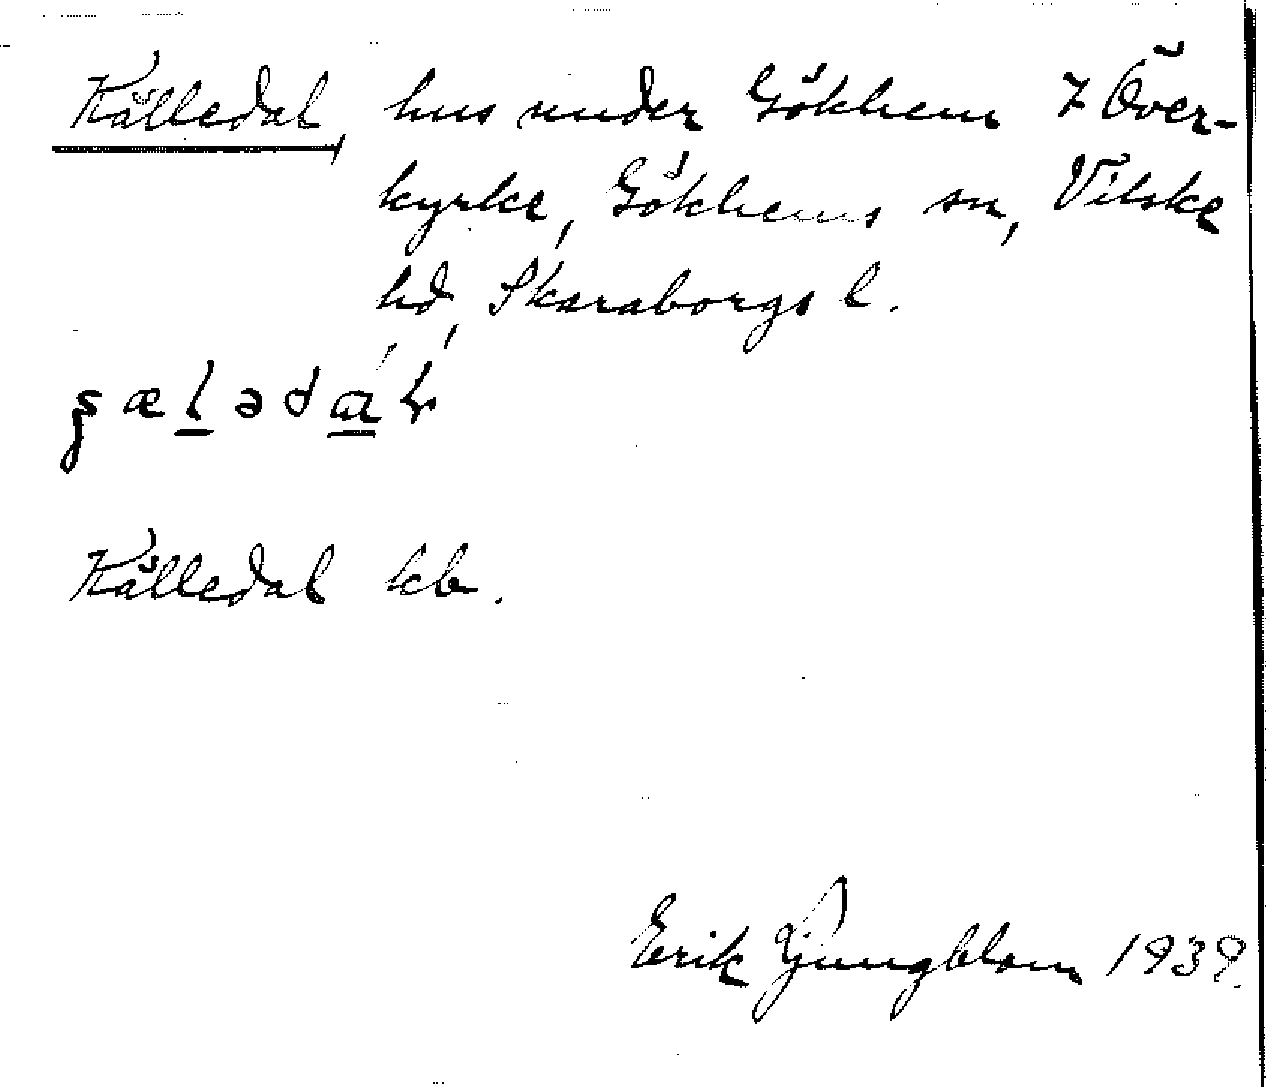 Källedal, hus under Gökhem 7 Över-
kyrke, Gökhems sn, Vilske
hd, Skaraborgs l.
Källedal kb.
Erik Ljungblom 1939.